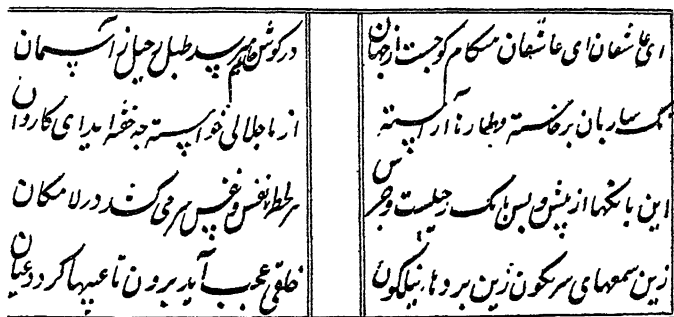 ای عاشقان ای عاشقان هنکام کوچست از جهان در کوش جانم میرسد طبل رحیل از آسمان
نک ساربان برخاسته و قطارها آراسته از ما حلالی خواسته چه خفته اید ای کاروان
این بانکها از پیش و پس بانک رحیلست و جرس هر لحظه نفس و نفس سر می کشد در لامکان
زین سمعهای سرنکون زین بردهاء نیلکون خلقی عجب آید برون تا غیبها کردد عیان